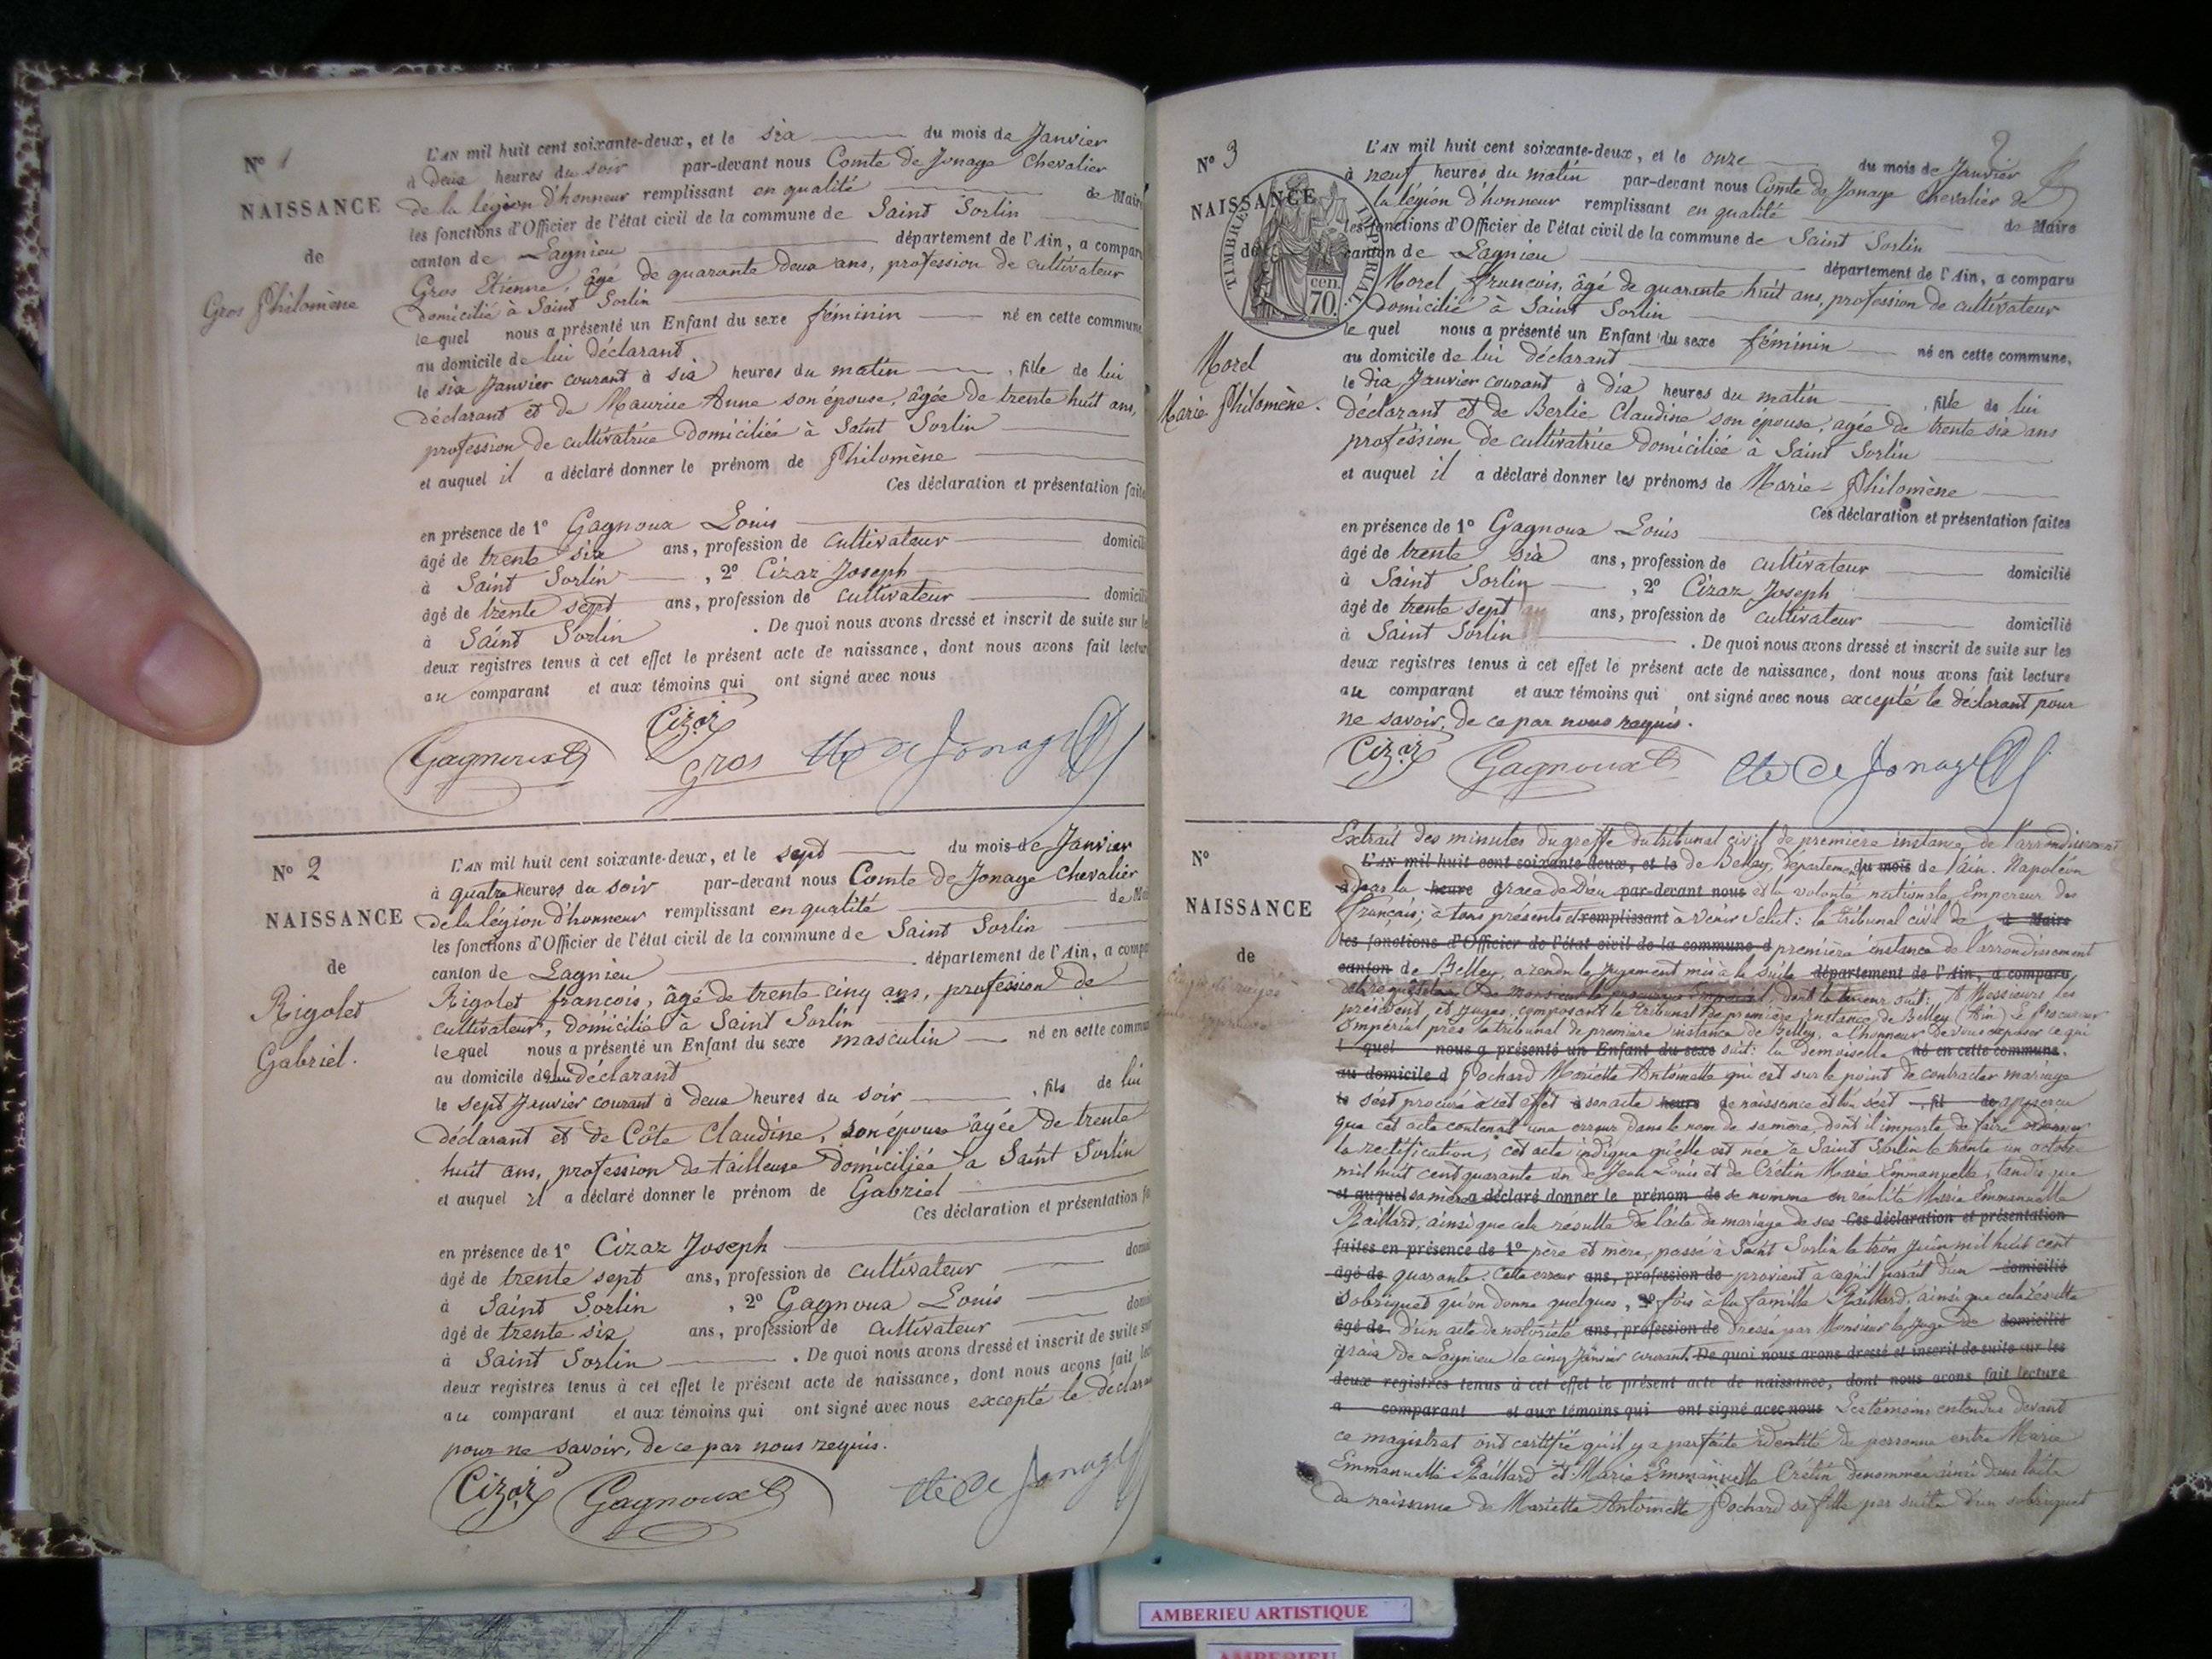 N° 1
NAISSANCE
de
Gros Philomène
L'AN mil huit cent soixante-deux, et le six du mois de Janvier
à deux heures du soir par-devant nous Comte de Jonage Chevalier
de la légion d'honneur remplissant en qualité de Maire
les fonctions d'Officier de l'état civil de la commune de Saint Sorlin
canton de Lagnieu département de l'Ain, a compar
Gros Etienne, âgé de quarante deux ans, profession de cultivateur
domicilié à Saint Sorlin
lequel nous a présenté un Enfant du sexe féminin né en cette commune
au domicile de lui déclarant
le six Janvier courant à six heures du matin , fille de lui
déclarant et de Maurice Anne son épouse, âgée de trente huit ans,
profession de cultivatrice domiciliée à Saint Sorlin
et auquel il a déclaré donner le prénom de Philomène
Ces déclaration et présentation faite
en présence de 1° Gagnoux Louis
âgé de trente six ans, profession de cultivateur domicili
à Saint Sorlin , 2° Cizar Joseph
âgé de trente sept ans, profession de cultivateur domicili
à Saint Sorlin . De quoi nous avons dressé et inscrit de suite sur le
deux registres tenus à cet effet le présent acte de naissance, dont nous avons fait lectur
au comparant et aux témoins qui ont signé avec nous
Cizar
Gagnoux Gros Cte de Jonage
N° 2
NAISSANCE
de
Rigolet
Gabriel.
L'AN mil huit cent soixante-deux, et le sept du mois de Janvier
à quatre heures du soir par-devant nous Comte de Jonage Chevalier
de la légion d'honneur remplissant en qualité de Mai
les fonctions d'Officier de l'état civil de la commune de Saint Sorlin
canton de Lagnieu département de l'Ain, a compa
Rigolet francois, âgé de trente cinq ans, profession de
cultivateur, domicilié à Saint Sorlin
lequel nous a présenté un Enfant du sexe masculin né en cette commun
au domicile de lui déclarant
le sept Janvier courant à deux heures du soir , fils de lui
déclarant et de Côte Claudine, son épouse âgée de trente
huit ans, profession de tailleuse domiciliée à Saint Sorlin
et auquel il a déclaré donner le prénom de Gabriel
Ces déclaration et présentation fa
en présence de 1° Cizar Joseph
âgé de trente sept ans, profession de cultivateur domi
à Saint Sorlin , 2° Gagnoux Louis
âgé de trente six ans, profession de cultivateur domi
à Saint Sorlin . De quoi nous avons dressé et inscrit de suite sur
deux registres tenus à cet effet le présent acte de naissance, dont nous avons fait lec
au comparant et aux témoins qui ont signé avec nous excepté le déclaran
pour ne savoir, de ce par nous requis.
Cizar Gagnoux Cte de Jonage
N° 3
NAISSANCE
de
TIMBRE IMPÉRIAL
70. cen.
Morel
Marie Philomène.
L'AN mil huit cent soixante-deux, et le onze du mois de Janvier
à neuf heures du matin par-devant nous Comte de Jonage Chevalier de
la légion d'honneur remplissant en qualité de Maire
les fonctions d'Officier de l'état civil de la commune de Saint Sorlin
canton de Lagnieu département de l'Ain, a comparu
Morel francois, âgé de quarante huit ans, profession de cultivateur
domicilié à Saint Sorlin
lequel nous a présenté un Enfant du sexe féminin né en cette commune,
au domicile de lui déclarant
le dix Janvier courant à dix heures du matin , fille de lui
déclarant et de Berlie Claudine son épouse, âgée de trente six ans
profession de cultivatrice domiciliée à Saint Sorlin
et auquel il a déclaré donner les prénoms de Marie-Philomène
Ces déclaration et présentation faites
en présence de 1° Gagnoux Louis
âgé de trente six ans, profession de cultivateur domicilié
à Saint Sorlin , 2° Cizar Joseph
âgé de trente sept ans, profession de cultivateur domicilié
à Saint Sorlin . De quoi nous avons dressé et inscrit de suite sur les
deux registres tenus à cet effet le présent acte de naissance, dont nous avons fait lecture
au comparant et aux témoins qui ont signé avec nous excepté le déclarant pour
ne savoir, de ce par nous requis.
Cizar Gagnoux Cte de Jonage
N°
NAISSANCE
de
Extrait des minutes du greffe du tribunal civil de première instance de l'arrondissement
L'AN mil huit cent soixante-deux, et le de Belley, département du mois de l'ain. Napoléon
à par la heure grace de Dieu par-devant nous et la volonté nationale Empereur des
français; à tous présents et remplissant à venir Salut: le tribunal civil de d Maire
les fonctions d'Officier de l'état civil de la commune d première instance de l'arrondissement
canton de Belley, a rendu le jugement mis à la suite département de l'Ain, a comparu
de la requête de Monsieur le procureur Impérial, dont la teneur suit: A Messieurs les
président et juges, composant le tribunal de première instance de Belley (Ain) Le Procureur
Impérial près le tribunal de première instance de Belley, a l'honneur de vous exposer ce qui
l quel nous a présenté un Enfant du sexe suit: la demoiselle né en cette commune.
au domicile d Pochard Mariette Antoinette qui est sur le point de contracter mariage
le s'est procuré à cet effet à son acte heure de naissance et l'on s'est , fil de apperçu
que cet acte contenait une erreur dans le nom de sa mère, dont il importe de faire ordonner
la rectification; cet acte indique qu'elle est née à Saint Sorlin le trente un octobre
mil huit cent quarante un de Jean Louis et de Crétin Marie Emmanuelle, tandis que
et auquel sa mère a déclaré donner le prénom de se nomme en réalité Marie Emmanuelle
Raillard, ainsi que cela résulte de l'acte de mariage de ses Ces déclaration et présentation
faites en présence de 1° père et mère, passé à Saint Sorlin le trois juin mil huit cent
âgé de quarante. Cette erreur ans, profession de provient à ce qu'il parait d'un domicilié
sobriquet qu'on donne quelques , 2° fois à la famille Raillard, ainsi que cela résulte
âgé de d'un acte de notoriété ans, profession de dressé par Monsieur le juge de domicilié
paix de Lagnieu le cinq Janvier courant. De quoi nous avons dressé et inscrit de suite sur les
deux registres tenus à cet effet le présent acte de naissance, dont nous avons fait lecture
a comparant et aux témoins qui ont signé avec nous Les témoins entendus devant
ce magistrat ont certifié qu'il y a parfaite identité de personne entre Marie
Emmanuelle Raillard et Marie Emmanuelle Crétin dénommée ainsi dans l'acte
de naissance de Mariette Antoinette Pochard sa fille par suite d'un sobriquet
AMBERIEU ARTISTIQUE
AMBERIEU